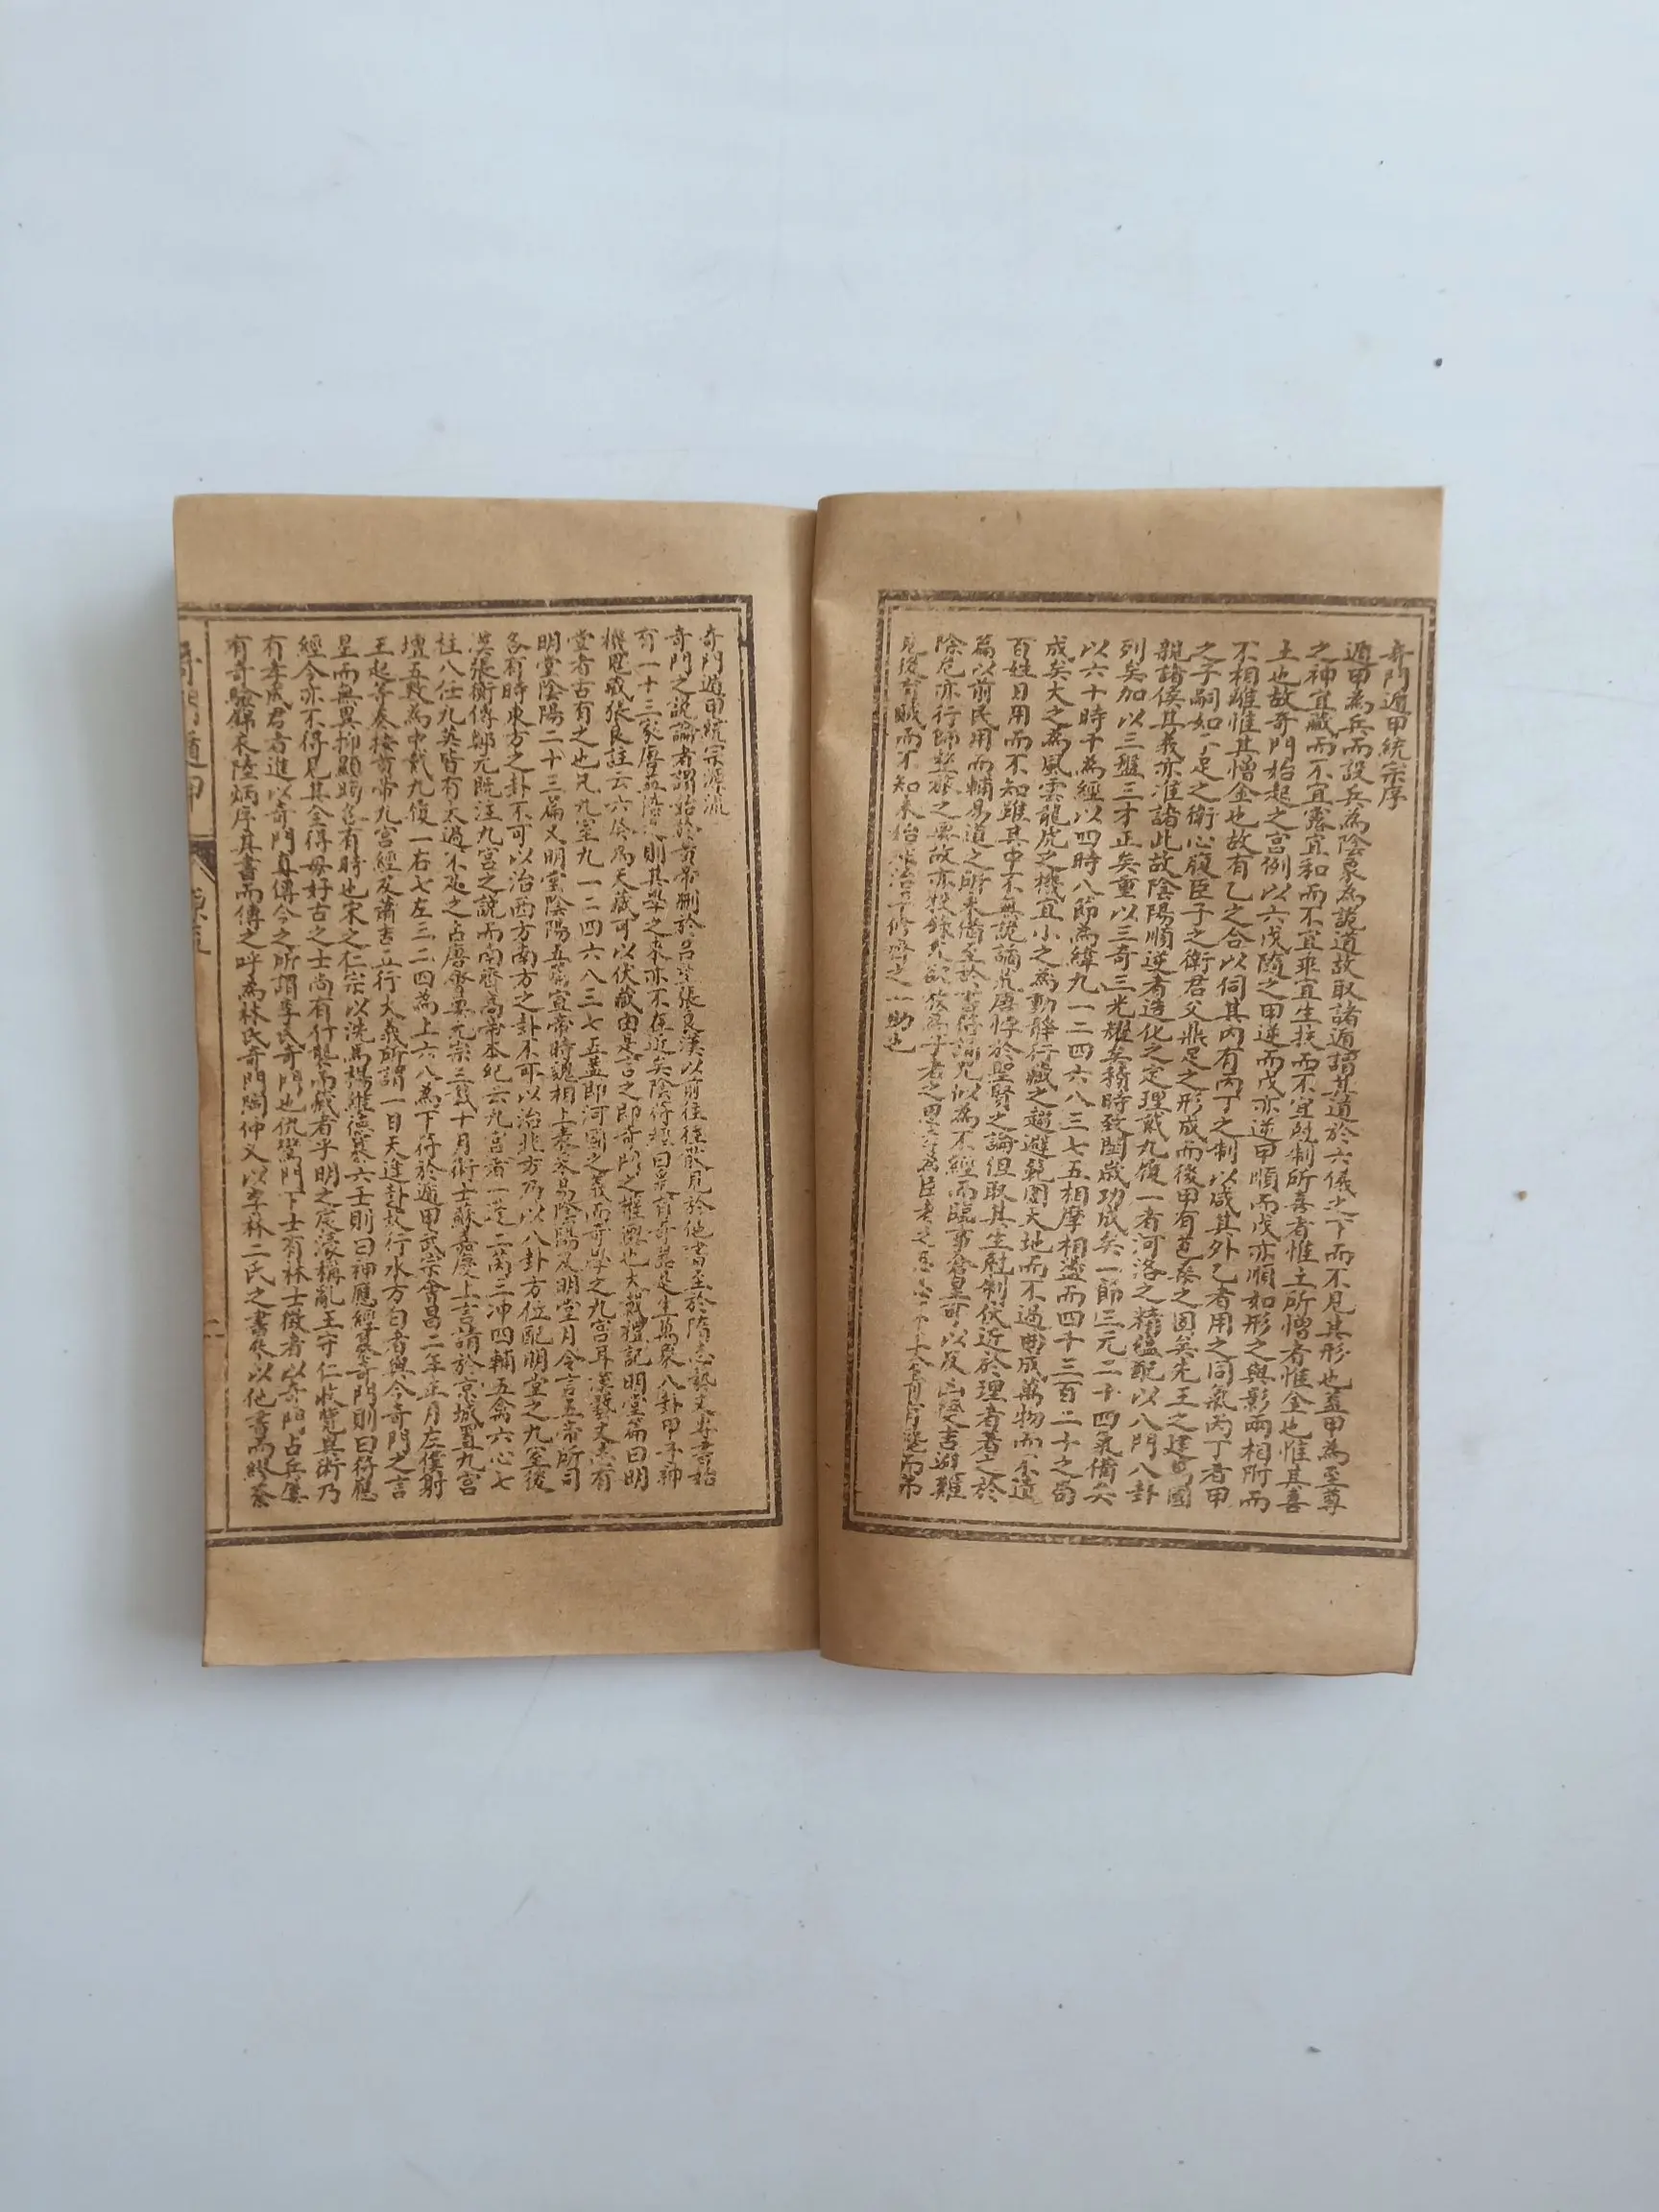 奇門遁甲統宗序
遁甲為兵而設兵為陰象為詭道故取諸遁謂其道於六儀之下而不見其形也蓋甲為至尊
之神宜藏而不宜露宜和而不宜乖宜生扶而不宜尅制所喜者惟土所憎者惟金也惟其喜
土也故奇門始起之宮例以六戊隨之甲逆而戊亦逆甲順而戊亦順如形之與影兩相附而
不相離惟其憎金也故有乙之合以伺其內有丙丁之制以威其外乙者用之同氣丙丁者甲
之子嗣如手足之衛心腹臣子之衛君父鼎足之形成而後甲有苞桑之固矣先王之建萬國
親諸侯其義亦准諸此故陰陽順逆者造化之定理戴九履一者河洛之精蘊配以八門八卦
列矣加以三盤三才正矣重以三奇三光耀矣積時致閏歲功成矣一節三元二十四氣備矣
以六十時干為經以四時八節為緯九一二四六八三七五相摩相盪而四千三百二十之局
成矣大之為風雲龍虎之機宜小之為動靜行藏之趨避範圍天地而不過曲成萬物而不遺
百姓日用而不知雖其中不無說謫荒唐悖於聖賢之論但取其生尅制伏近於理者著之於
篇以前民用而輔易道之所未備至於書符誦咒似為不經而臨事倉皇可以反凶變吉避難
除危亦行師整旅之要故亦
見後有賊而不知未始非治平修齊之一助也
奇門遁甲統宗源流
奇門之說論者謂始於黃帝刪於呂望張良漢以前往往散見於他書至於隋志藝文專書始
有一十三家唐益
機鬼藏張良註云六癸為天藏可以伏藏由是言之即奇門之權輿也大戴禮記明堂篇曰明
堂者古有之也凡九室九一二四六八三七五蓋即河圖之義而奇學之九宮耳漢藝文志有
明堂陰陽二十三篇又明堂陰陽五篇宣帝時魏相上表采易陰陽及明堂月令言五帝所司
各有時東方之卦不可以治西方南方之卦不可以治北方乃以八卦方位配明堂之九室後
漢張衡傳鄭元既注九宮之說而南齊高帝本紀云九宮者一蓬二芮三冲四輔五禽六心七
柱八任九英皆有太過不及之占唐會要元宗三載十月術士蘇嘉慶上言請於京城置九宮
壇五數為中戴九履一右七左三二四為上六八為下符於遁甲武宗會昌二年正月左僕射
王起等奏按黃帝九宮經及蕭吉五行大義所謂一曰天逢卦坎行水方白者與今奇門之言
星而無異抑顯晦各有時也宋之仁宗以洗馬楊維德纂六壬則曰神應經纂奇門則曰符應
經今亦不得見其全得毋好古之士尚有什襲而藏者乎明之宸濠稱亂王守仁收覽異術乃
有李成君者進以奇門真傳今之所謂李氏奇門也仇鸞門下士有林士徵者以奇門占兵屢
有奇驗錦衣陸炳序其書而傳之呼為林氏奇門陶仲文以李林二氏之書
奇門遁甲 源流 二